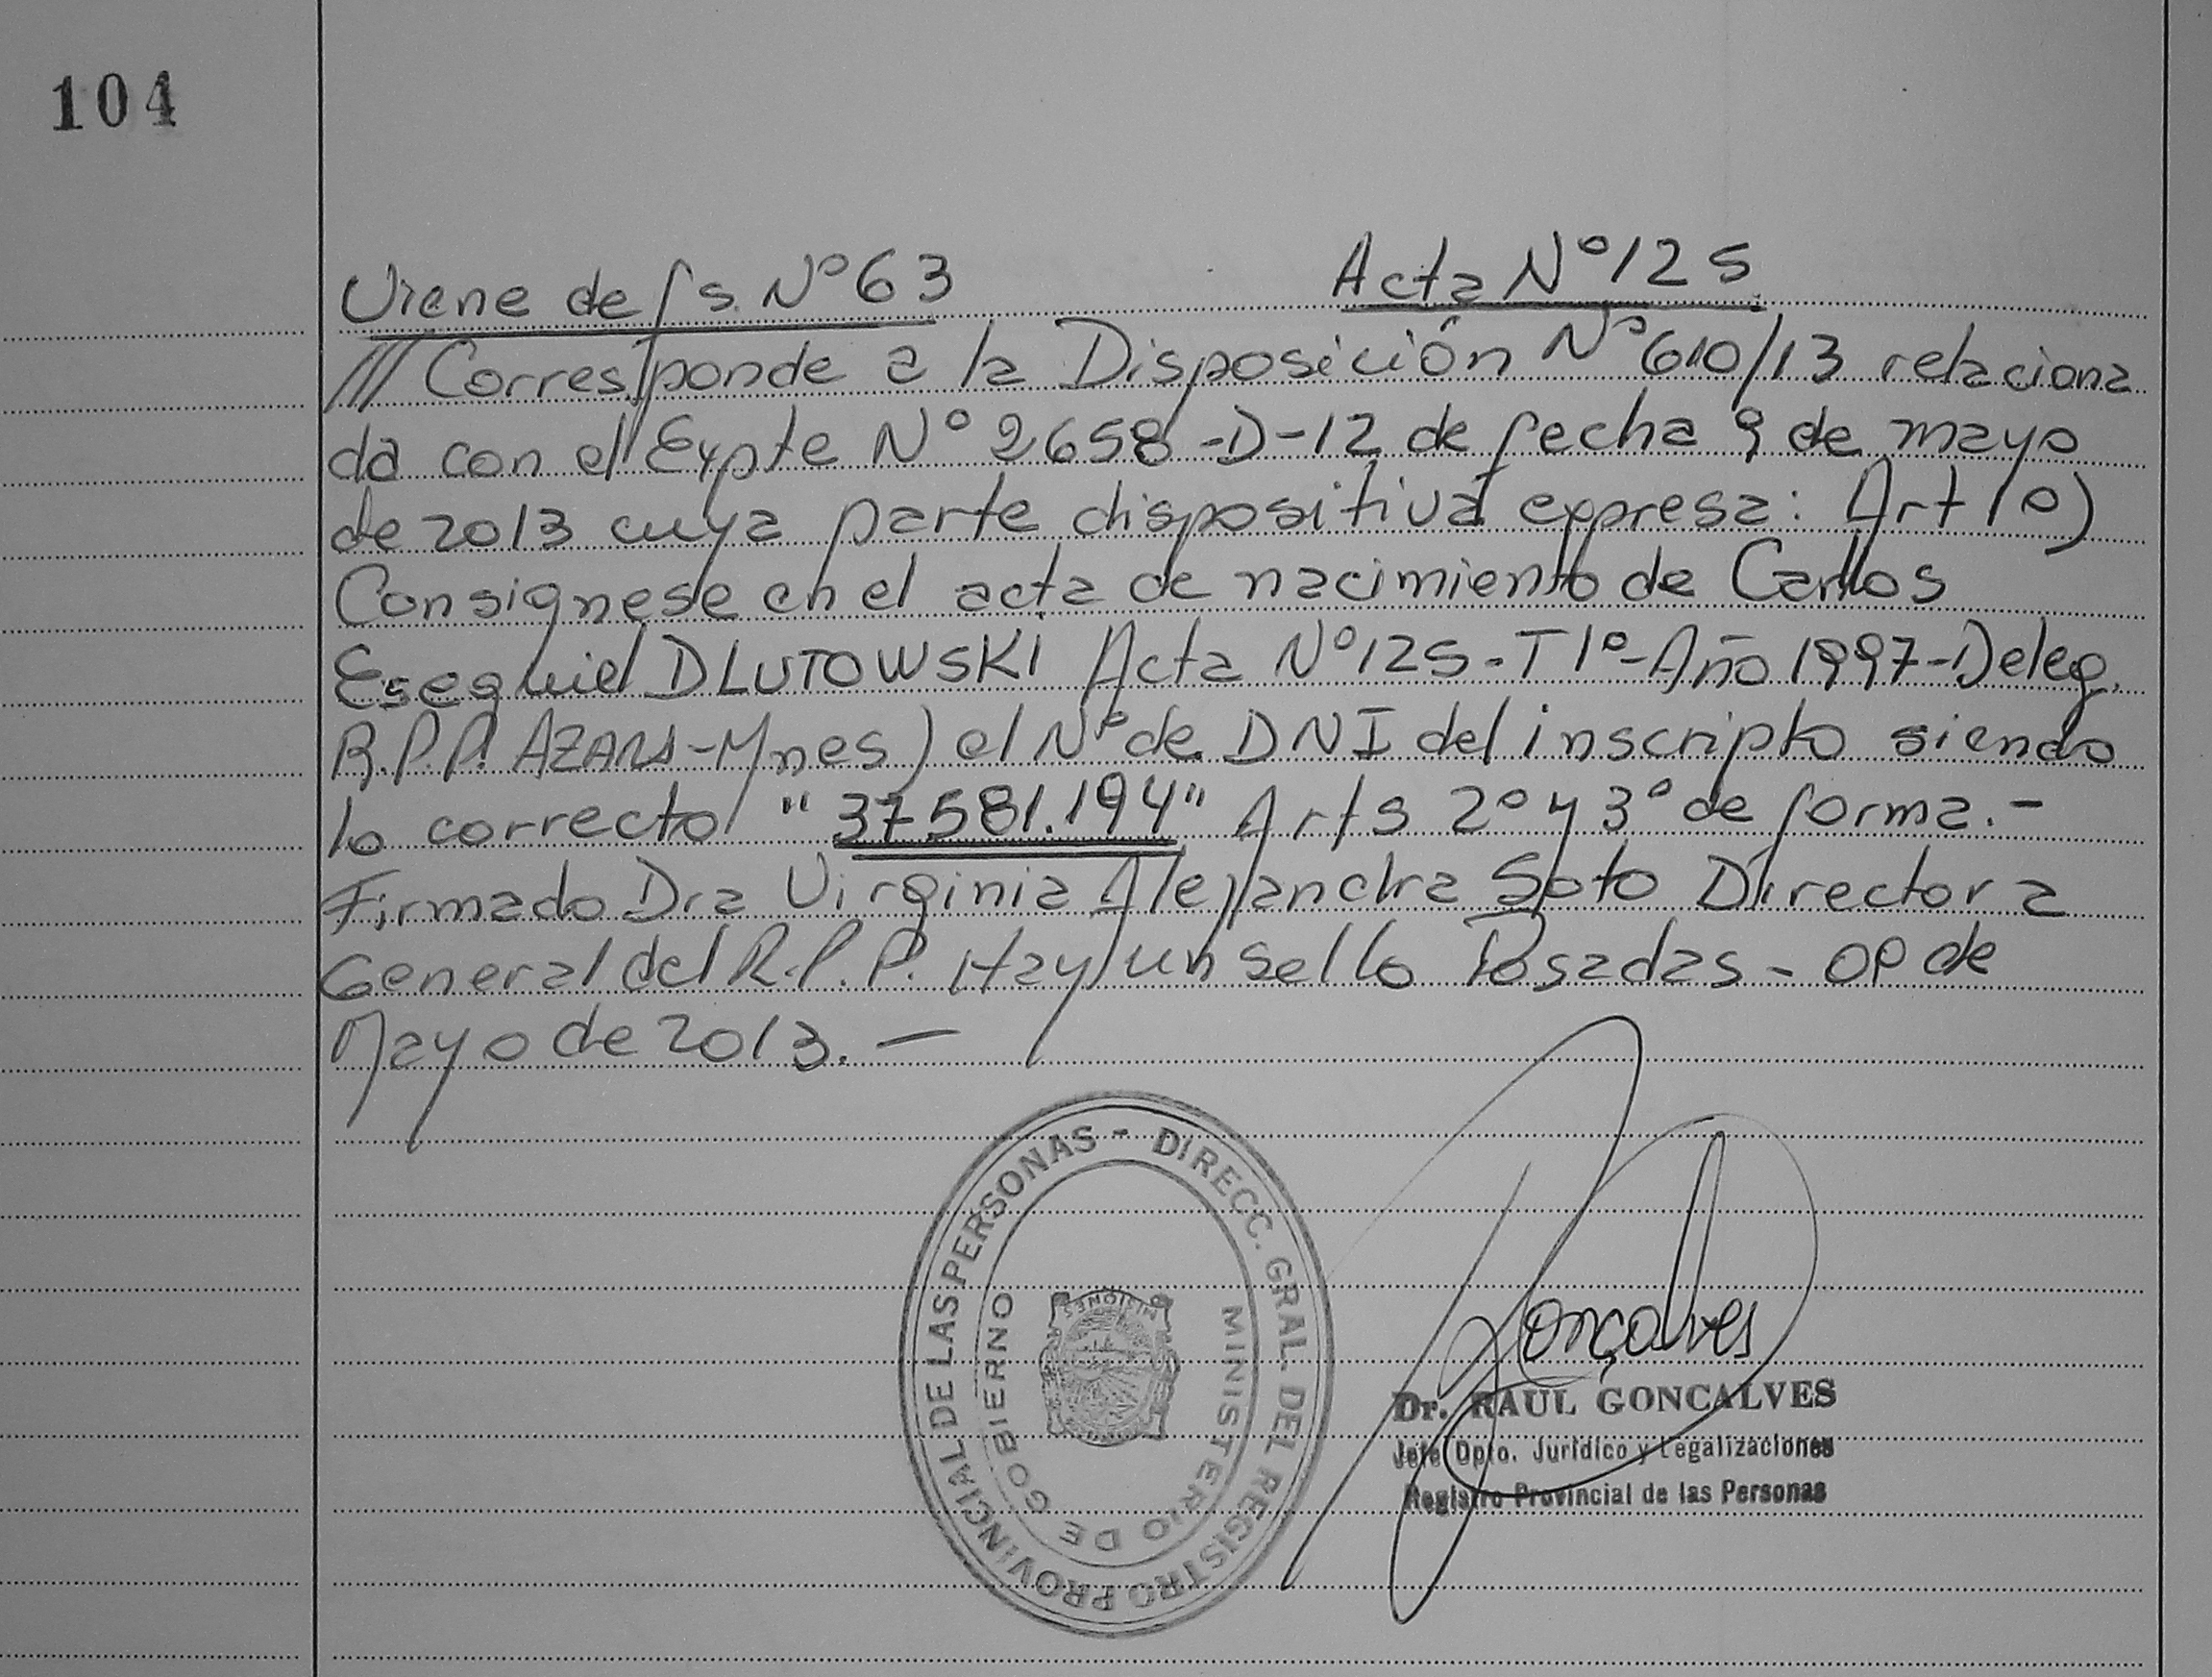 104
Viene de fs. Nº 63
Acta Nº 125
/// Corresponde a la Disposición Nº 610/13 relaciona
da con el Expte Nº 2658-D-12 de fecha 9 de mayo
de 2013 cuya parte dispositiva expresa: Art 1º)
Consignese en el acta de nacimiento de Carlos
Esequiel DLUTOWSKI Acta Nº 125-T1º-Año 1997-Deleg.
R.P.P. AZARA-Mnes) el Nº de DNI del inscripto siendo
lo correcto "37581.194" Arts 2º y 3º de forma.-
Firmado Dra Virginia Alejandra Soto Directora
General del R.P.P. Hay un sello Posadas - 09 de
Mayo de 2013.-
DIRECC. GRAL. DEL REGISTRO PROVINCIAL DE LAS PERSONAS -
MINISTERIO DE GOBIERNO
MISIONES
Gonçalves
Dr. RAUL GONCALVES
Jefe Dpto. Jurídico y Legalizaciones
Registro Provincial de las Personas